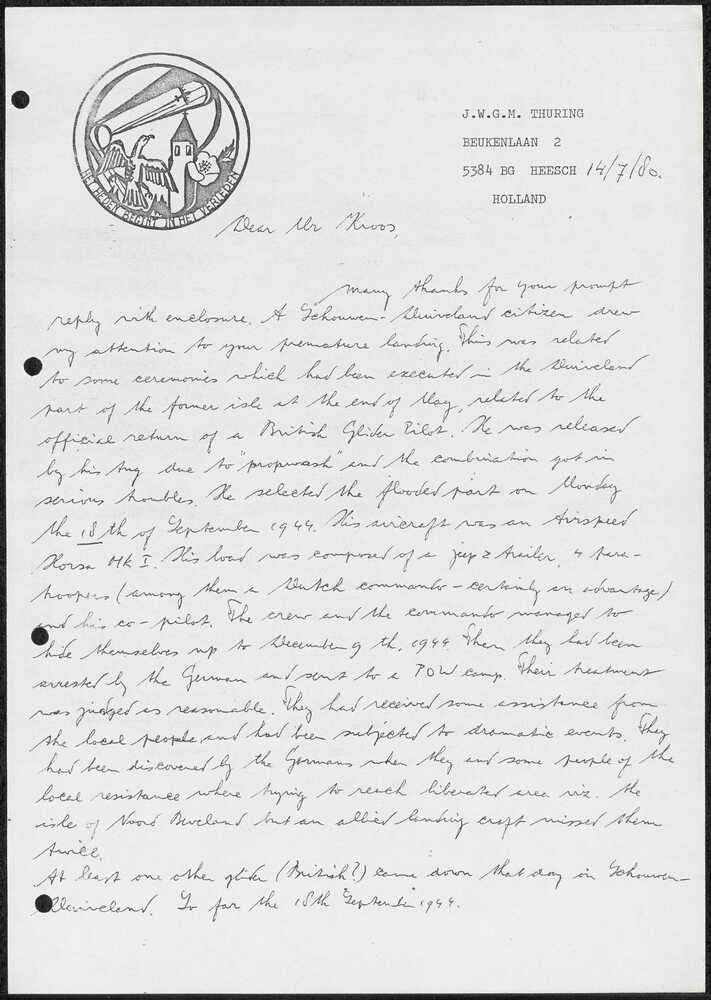 HET HEDEN BEGINT IN HET VERLEDEN
J.W.G.M. THURING
BEUKENLAAN 2
5384 BG HEESCH 14/7/80.
HOLLAND
Dear Mr Kroos,
many thanks for your prompt
reply with enclosure. A Schouwen-Duiveland citizen drew
my attention to your premature landing. This was related
to some ceremonies which had been executed in the Duiveland
part of the former isle at the end of May, related to the
official return of a British Glider Pilot. He was released
by his tug due to "propwash" and the combination got in
serious troubles. He selected the flooded part on Monday
the 18th of September 1944. His aircraft was an Airspeed
Horsa Mk I. His load was composed of a jeep & trailer, 4 para-
troopers (among them a Dutch commando - certainly an advantage)
and his co-pilot. The crew and the commando managed to
hide themselves up to December 9th, 1944. Then they had been
arrested by the German and sent to a POW camp. Their treatment
was judged as reasonable. They had received some assistance from
the local people and had been subjected to dramatic events. They
had been discovered by the Germans when they and some people of the
local resistance where trying to reach liberated area viz. the
isle of Noord Beveland but an allied landing craft missed them
twice.
At least one other glider (British?) came down that day in Schouwen-
Duiveland. So far the 18th September 1944.